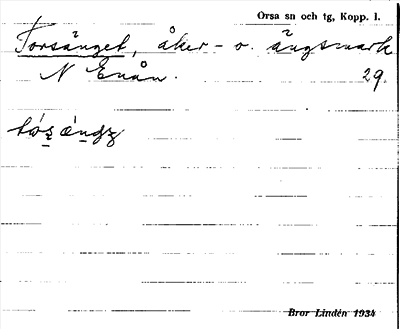 Orsa sn och tg, Kopp. l.
Torsänget, åker- o. ängsmark
N Enån. 29.
Bror Lindén 1934